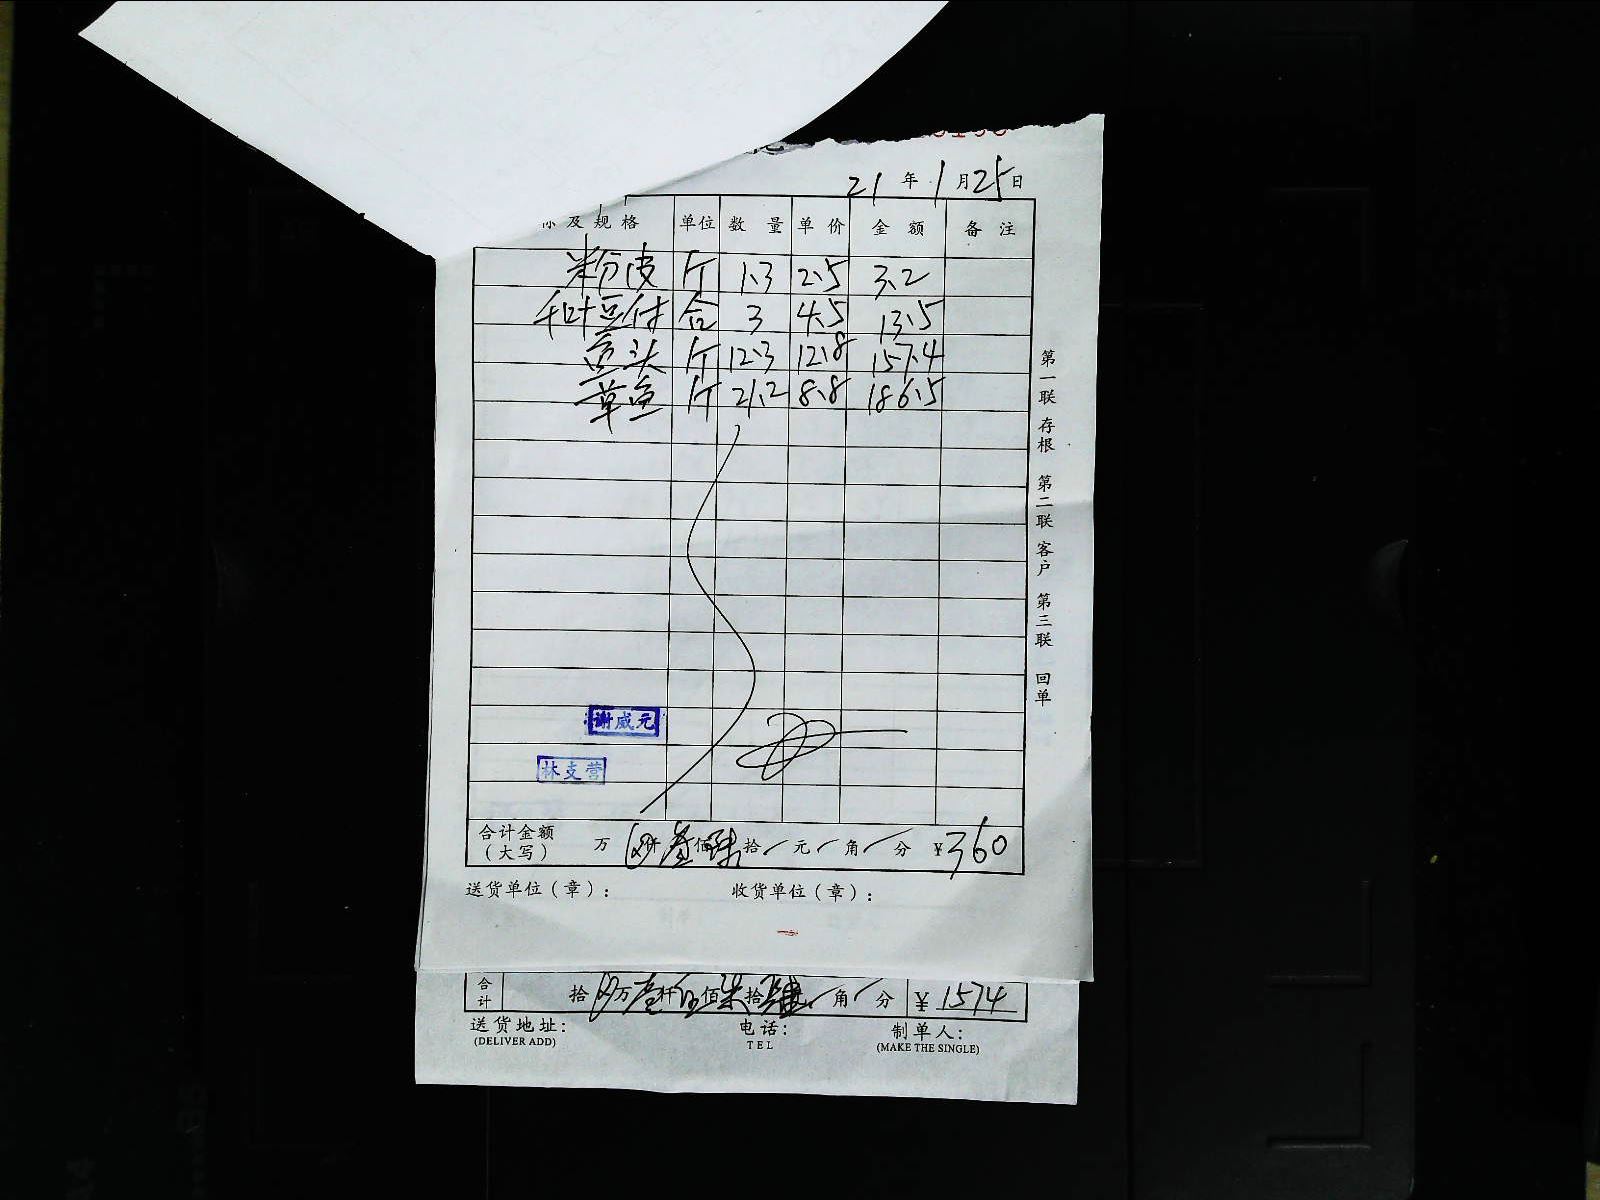 21 年 1 月 25 日
称及规格 单位 数量 单价 金额 备注
粉皮 斤 1.3 2.5 3.2
千叶豆付 合 3 4.5 13.5
鱼头 斤 12.3 12.8 157.4
草鱼 斤 21.2 8.8 186.5
第一联 存根 第二联 客户 第三联 回单
谢威元
林支营
合计金额（大写） 万 仟叁佰陆拾 元 角 分 ¥360
送货单位（章）： 收货单位（章）：
合计 拾 万壹仟伍佰柒拾肆 角 分 ¥1574
送货地址： 电话： 制单人：
(DELIVER ADD) TEL (MAKE THE SINGLE)